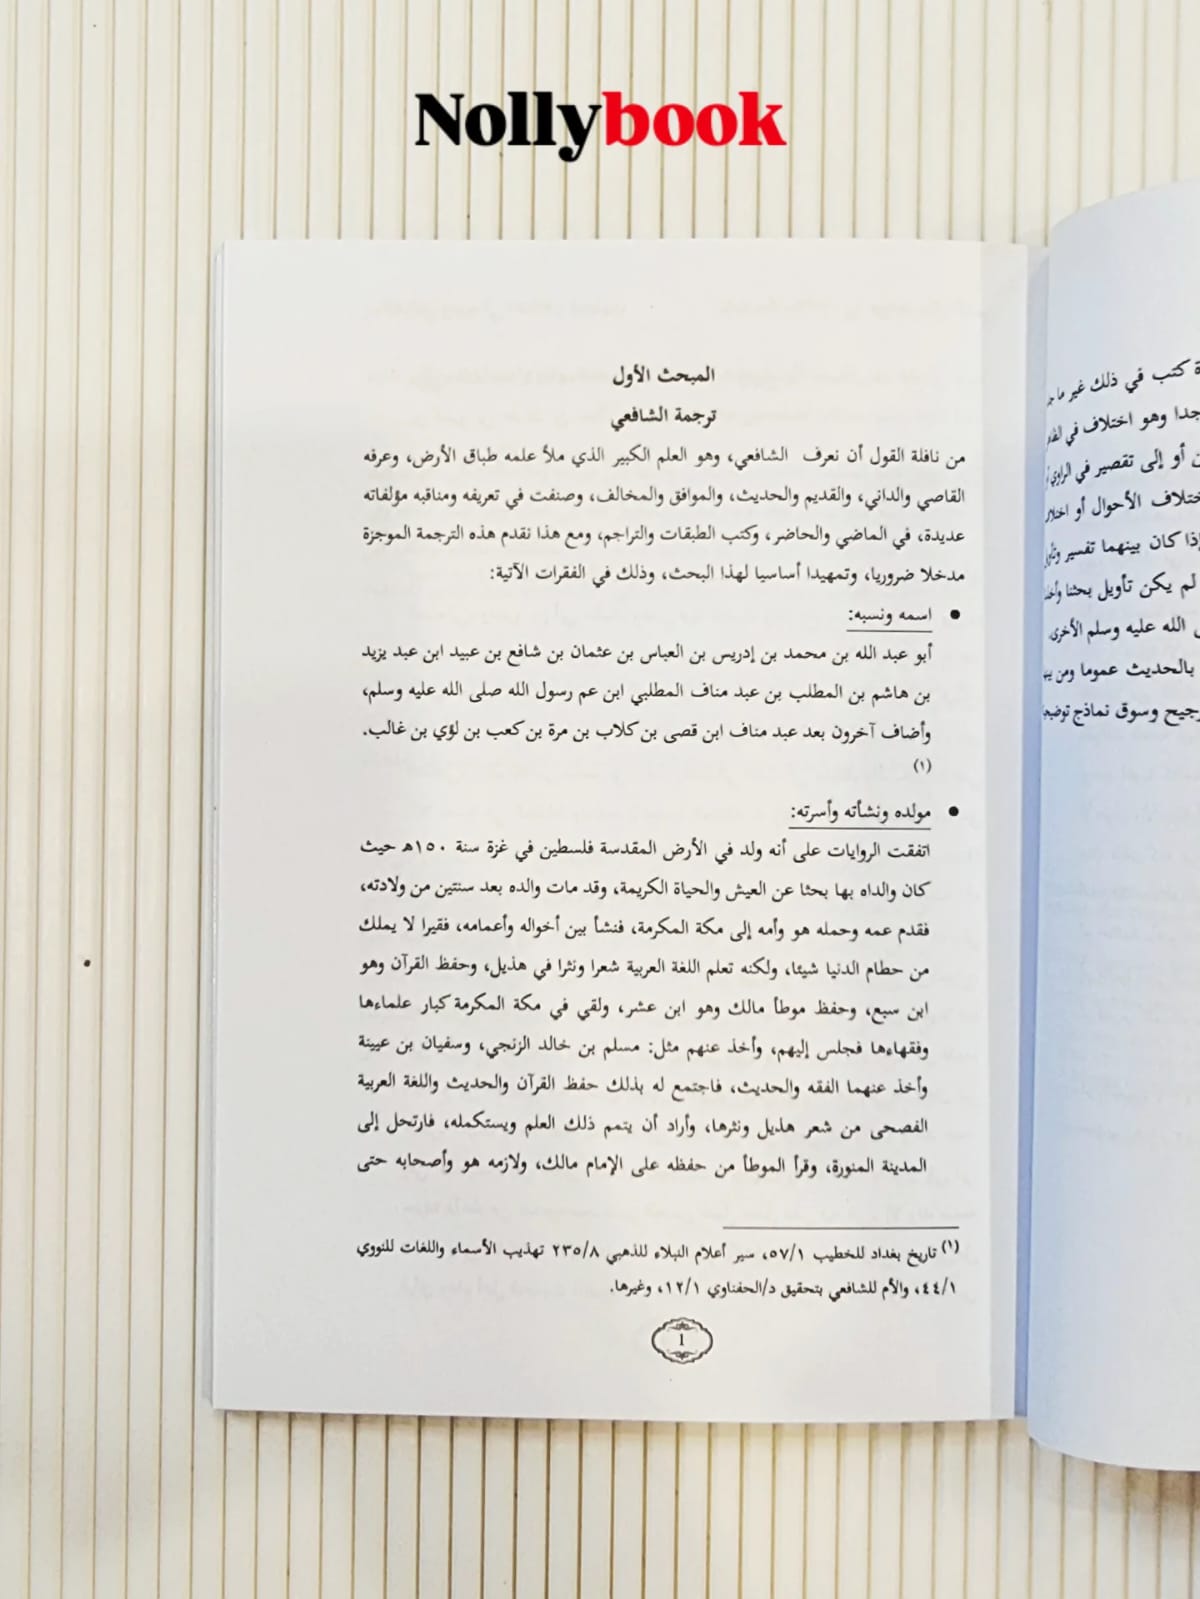 Nollybook
المبحث الأول
ترجمة الشافعي
من نافلة القول أن نعرف الشافعي، وهو العلم الكبير الذي ملأ علمه طباق الأرض، وعرفه
القاصي والداني، والقديم والحديث، والموافق والمخالف، وصنفت في تعريفه ومناقبه مؤلفاته
عديدة، في الماضي والحاضر، وكتب الطبقات والتراجم، ومع هذا نقدم هذه الترجمة الموجزة
مدخلا ضروريا، وتمهيدا أساسيا لهذا البحث، وذلك في الفقرات الآتية:
• اسمه ونسبه:
أبو عبد الله بن محمد بن إدريس بن العباس بن عثمان بن شافع بن عبيد ابن عبد يزيد
بن هاشم بن المطلب بن عبد مناف المطلبي ابن عم رسول الله صلى الله عليه وسلم،
وأضاف آخرون بعد عبد مناف ابن قصى بن كلاب بن مرة بن كعب بن لؤي بن غالب.
(١)
• مولده ونشأته وأسرته:
اتفقت الروايات على أنه ولد في الأرض المقدسة فلسطين في غزة سنة ١٥٠هـ حيث
كان والداه بها بحثا عن العيش والحياة الكريمة، وقد مات والده بعد سنتين من ولادته،
فقدم عمه وحمله هو وأمه إلى مكة المكرمة، فنشأ بين أخواله وأعمامه، فقيرا لا يملك
من حطام الدنيا شيئا، ولكنه تعلم اللغة العربية شعرا ونثرا في هذيل، وحفظ القرآن وهو
ابن سبع، وحفظ موطأ مالك وهو ابن عشر، ولقي في مكة المكرمة كبار علماءها
وفقهاءها فجلس إليهم، وأخذ عنهم مثل: مسلم بن خالد الزنجي، وسفيان بن عيينة
وأخذ عنهما الفقه والحديث، فاجتمع له بذلك حفظ القرآن والحديث واللغة العربية
الفصحى من شعر هذيل ونثرها، وأراد أن يتمم ذلك العلم ويستكمله، فارتحل إلى
المدينة المنورة، وقرأ الموطأ من حفظه على الإمام مالك، ولازمه هو وأصحابه حتى
(١) تاريخ بغداد للخطيب ٥٧/١، سير أعلام النبلاء للذهبي ٢٣٥/٨ تهذيب الأسماء واللغات للنووي
٤٤/١، والأم للشافعي بتحقيق د/الحفناوي ١٢/١، وغيرها.
١
كتب في ذلك غير ما
جدا وهو اختلاف في
أو إلى تقصير في الراوي
الأحوال أو
كان بينهما تفسير
لم يكن تأويل بحثنا
الله عليه وسلم الأخرى.
بالحديث عموما ومن
وسوق نماذج